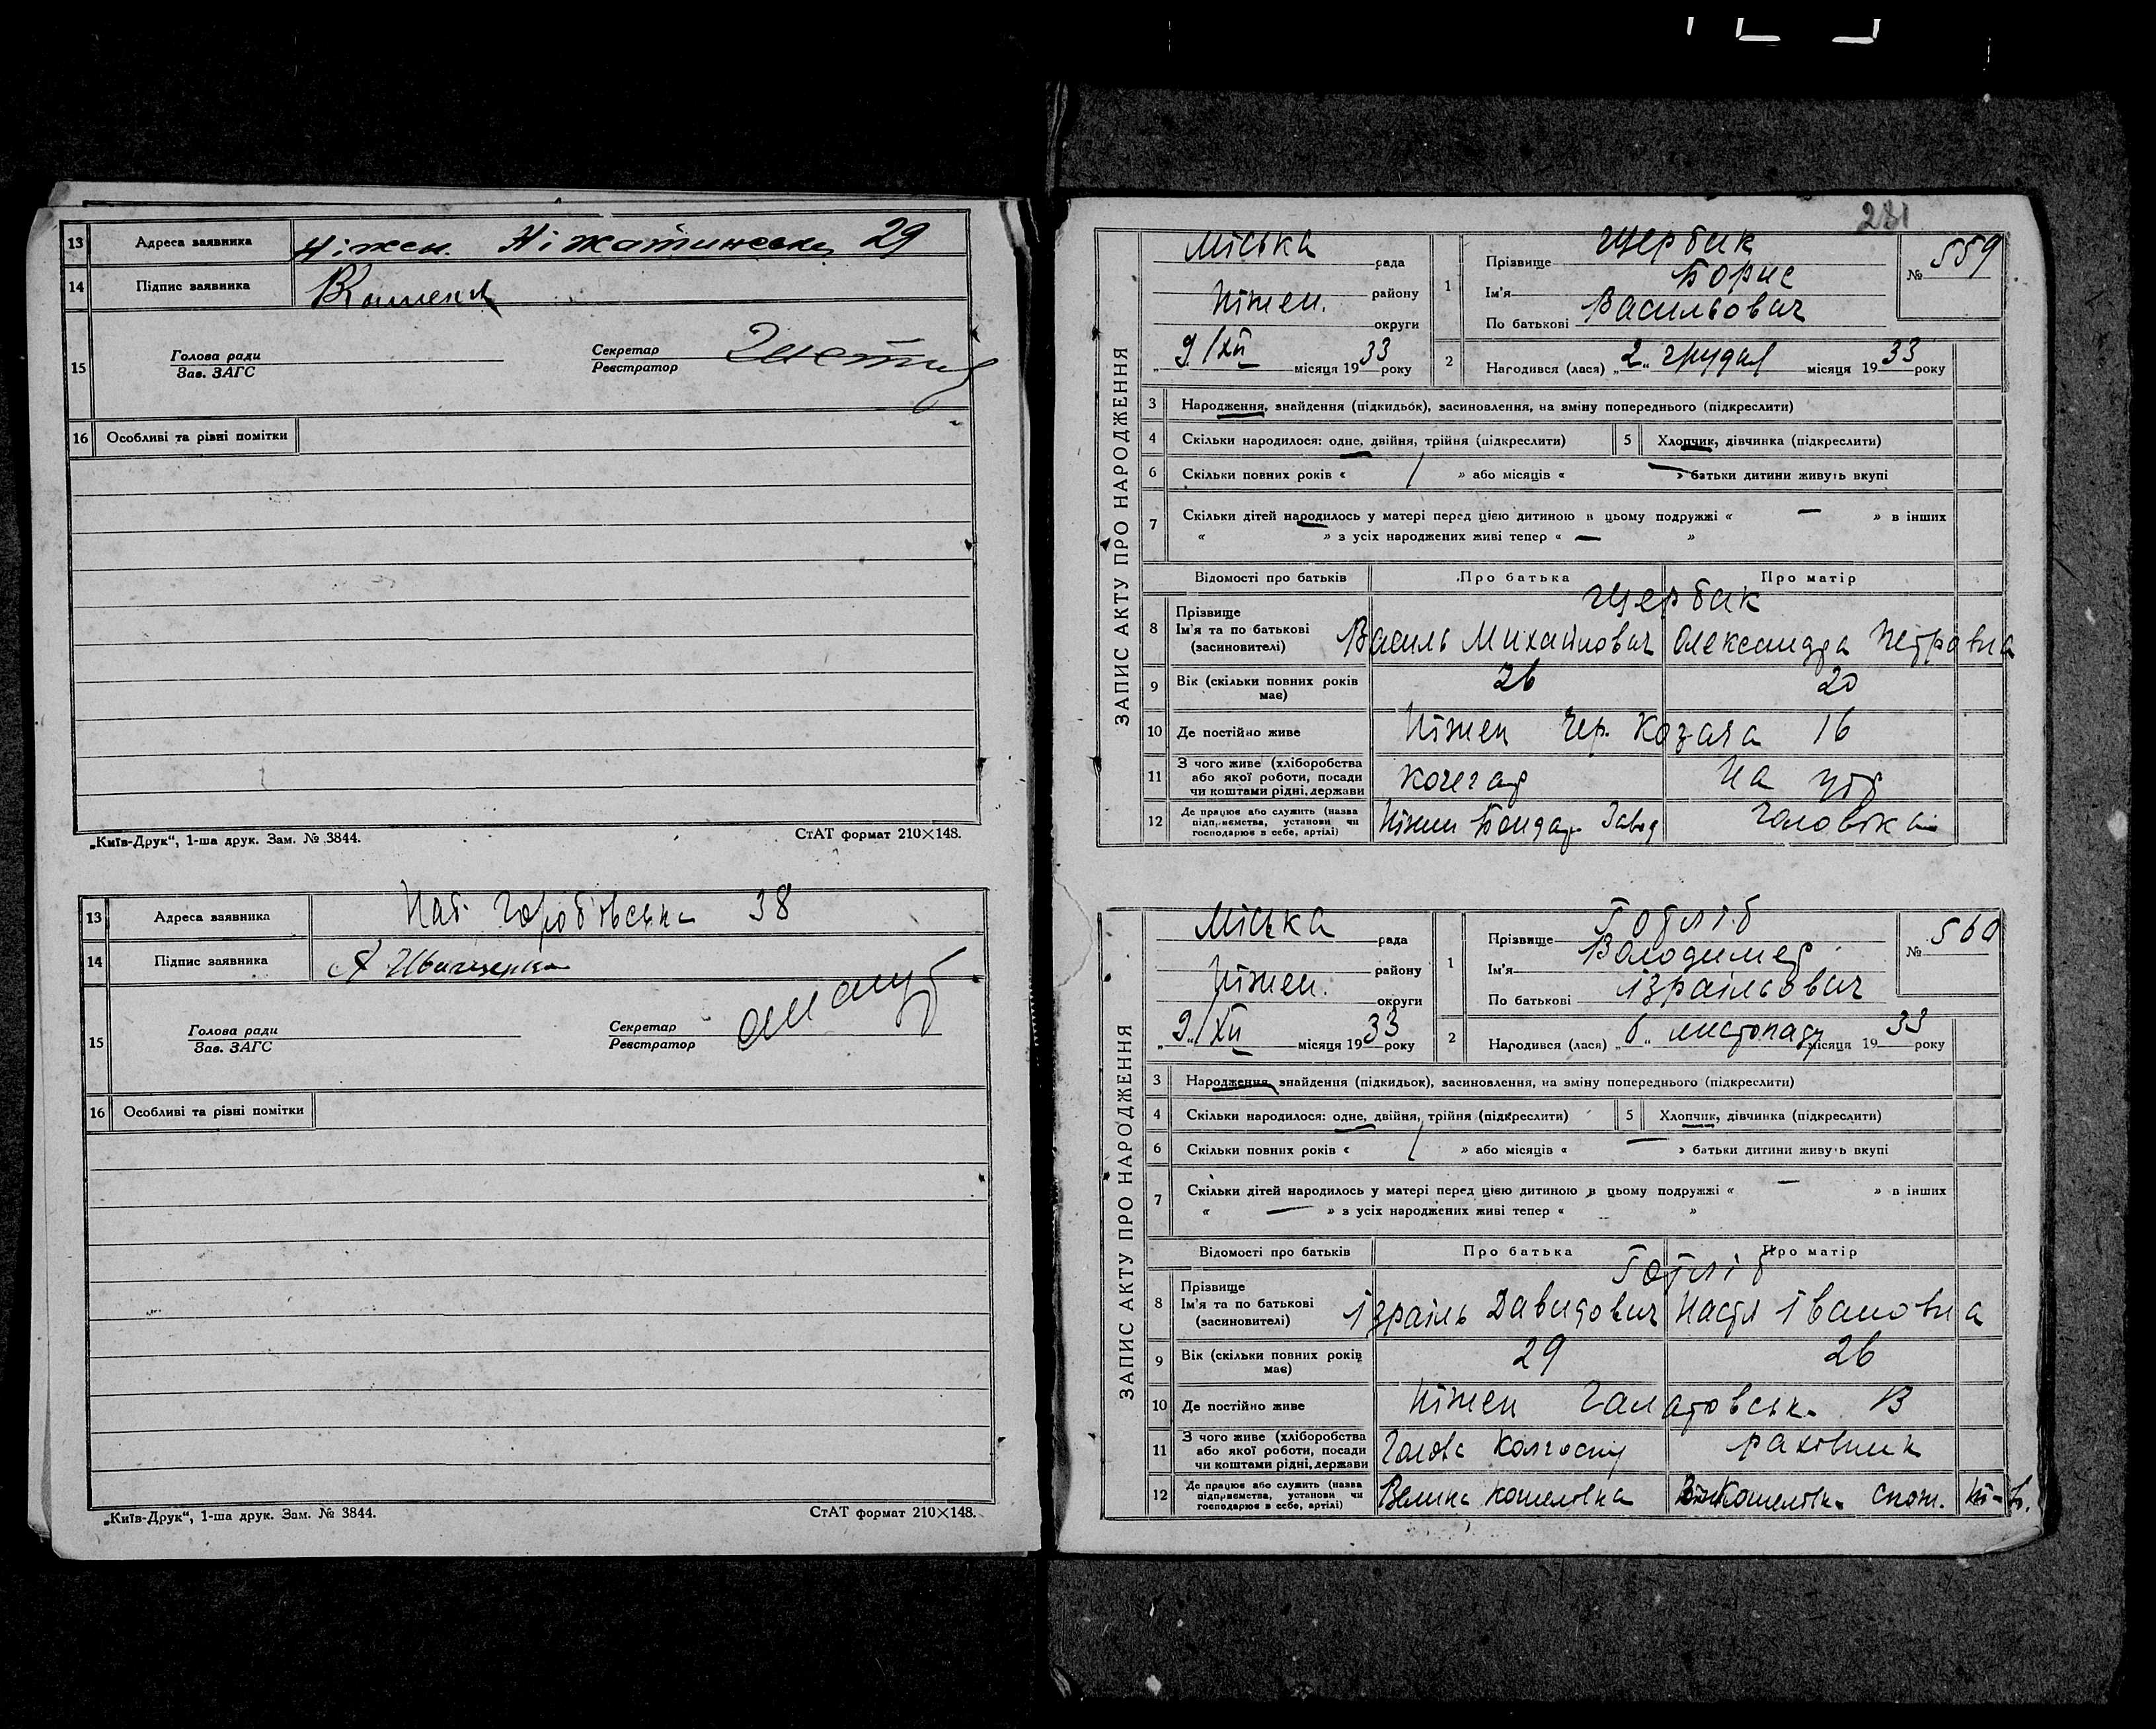 13 Адреса заявника Ніжен. Ніжатинська 29
14 Підпис заявника
15 Голова ради
Зав. ЗАГС
Секретар
Реєстратор
16 Особливі та різні помітки
„Київ-Друк“, 1-ша друк. Зам. № 3844. СтАТ формат 210×148.
13 Адреса заявника Наб. Горобʼївська 38
14 Підпис заявника
15 Голова ради
Зав. ЗАГС
Секретар
Реєстратор
16 Особливі та різні помітки
„Київ-Друк“, 1-ша друк. Зам. № 3844. СтАТ формат 210×148.
281
ЗАПИС АКТУ ПРО НАРОДЖЕННЯ
Міська рада
Ніжен. району
округи
„9/XII місяця 1933 року
1 Прізвище Щербак
Ім'я Борис
По батькові Васильович
№ 559
2 Народився (лася) „2“ грудня місяця 1933 року
3 Народження, знайдення (підкидьок), засиновлення, на зміну попереднього (підкреслити)
4 Скільки народилося: одне, двійня, трійня (підкреслити) 5 Хлопчик, дівчинка (підкреслити)
6 Скільки повних років « / » або місяців « — » батьки дитини живуть вкупі
7 Скільки дітей народилось у матері перед цією дитиною в цьому подружжі « — » в інших
« » з усіх народжених живі тепер « — »
Відомості про батьків Про батька Про матір
Щербак
8 Прізвище
Ім'я та по батькові
(засиновителі)
Василь Михайлович Олександра Петровна
9 Вік (скільки повних років має) 26 20
10 Де постійно живе Ніжен Чер. Козача 16
11 З чого живе (хліборобства
або якої роботи, посади
чи коштами рідні, держави
кочегар На утр
12 Де працює або служить (назва
підприємства, установи чи
господарює в себе, артілі)
Ніжен Бондар. Завод чоловіка
ЗАПИС АКТУ ПРО НАРОДЖЕННЯ
Міська рада
Ніжен. району
округи
„9“/XII місяця 1933 року
1 Прізвище Готліб
Ім'я Володимер
По батькові Ізраільович
№ 560
2 Народився (лася) „6“ листопаду місяця 1933 року
3 Народження, знайдення (підкидьок), засиновлення, на зміну попереднього (підкреслити)
4 Скільки народилося: одне, двійня, трійня (підкреслити) 5 Хлопчик, дівчинка (підкреслити)
6 Скільки повних років « / » або місяців « — » батьки дитини живуть вкупі
7 Скільки дітей народилось у матері перед цією дитиною в цьому подружжі « — » в інших
« — » з усіх народжених живі тепер « »
Відомості про батьків Про батька Про матір
Готліб
8 Прізвище
Ім'я та по батькові
(засиновителі)
Ізраіль Давидович Настя Івановна
9 Вік (скільки повних років має) 29 26
10 Де постійно живе Ніжен
11 З чого живе (хліборобства
або якої роботи, посади
чи коштами рідні, держави
Голова Колгоспу рахівник
12 Де працює або служить (назва
підприємства, установи чи
господарює в себе, артілі)
Велика Кошелівка Кошелівк. спож.